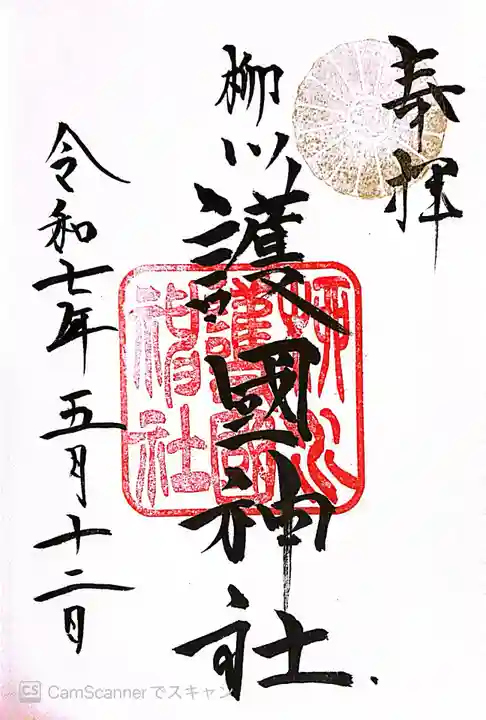 奉拝
柳川護國神社
柳川
護國
神社
令和七年五月十二日
CS CamScannerでスキャン